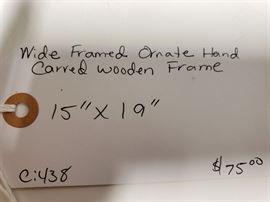 Wide Framed Ornate Hand
Carved Wooden Frame
15" X 19"
C:438 $75.00